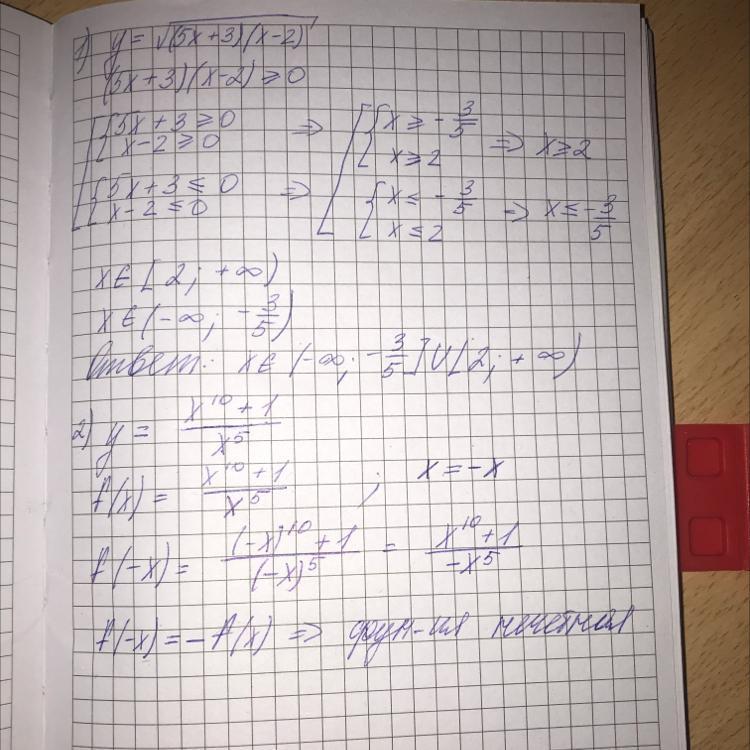 1) y = √(5x+3)(x-2)
(5x+3)(x-2) ⩾ 0
[ { 5x+3 ⩾ 0 ⇒ [ { x ⩾ -3/5
x-2 ⩾ 0 x ⩾ 2 ⇒ x ⩾ 2
{ 5x+3 ⩽ 0 ⇒ { x ⩽ -3/5
x-2 ⩽ 0 x ⩽ 2 ⇒ x ⩽ -3/5
x ∈ [2; +∞)
x ∈ (-∞; -3/5)
Ответ: x ∈ (-∞; -3/5] ∪ [2; +∞)
2) y = (x^10 + 1)/x^5
f(x) = (x^10 + 1)/x^5 ; x = -x
f(-x) = ((-x)^10 + 1)/(-x)^5 = (x^10 + 1)/-x^5
f(-x) = -f(x) ⇒ фун-ия нечетная